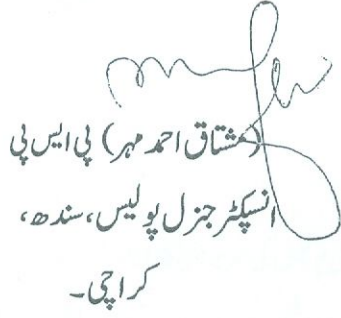 (مشتاق احمد مہر) پی ایس پی
انسپکٹر جنرل پولیس، سندھ،
کراچی۔